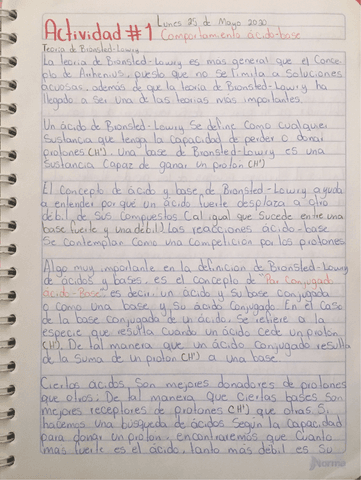 Actividad #1
Lunes 25 de Mayo 2020
Comportamiento ácido-base
Teoría de Bronsted-Lowry
La teoría de Bronsted-Lowry es mas general que el Conce-
pto de Arrhenius, puesto que no se limita a soluciones
acuosas, además de que la teoría de Bronsted-Lowry ha
llegado a ser una de las teorias mas importantes.
Un ácido de Bronsted-Lowry se define como cualquier
sustancia que tenga la capacidad de perder o donar
protones (H⁺). Una base de Bronsted-Lowry es una
sustancia capaz de ganar un protón (H⁺)
El concepto de ácido y base de Bronsted-Lowry ayuda
a entender por qué un ácido fuerte desplaza a otro
débil de sus compuestos (al igual que sucede entre una
base fuerte y una debil). Las reacciones ácido-base
se contemplan como una competición por los protones.
Algo muy importante en la definición de Bronsted-Lowry
de ácidos y bases, es el concepto de "Par Conjugado
ácido-Base" es decir, un ácido y su base conjugada
o como una base y su ácido conjugado. En el caso
de la base conjugada de un ácido. Se refiere a la
especie que resulta cuando un ácido cede un protón
(H⁺). De tal manera que un ácido conjugado resulta
de la suma de un protón (H⁺) a una base.
Ciertos ácidos, son mejores donadores de protones
que otros. De tal manera que ciertas bases son
mejores receptores de protones (H⁺) que otras. Si
hacemos una búsqueda de ácidos según la capacidad
para donar un protón, encontraremos que cuanto
mas fuerte es el ácido, tanto mas débil es su